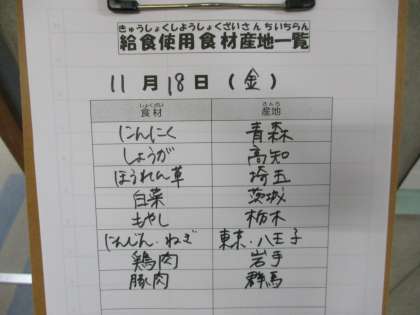 きゅうしょくしようしょくざいさんちいちらん
給食使用食材産地一覧
11月18日(金)
しょくざい さんち
食材 産地
にんにく 青森
しょうが 高知
ほうれん草 埼玉
白菜 茨城
もやし 栃木
にんじん・ねぎ 東京・八王子
鶏肉 岩手
豚肉 群馬